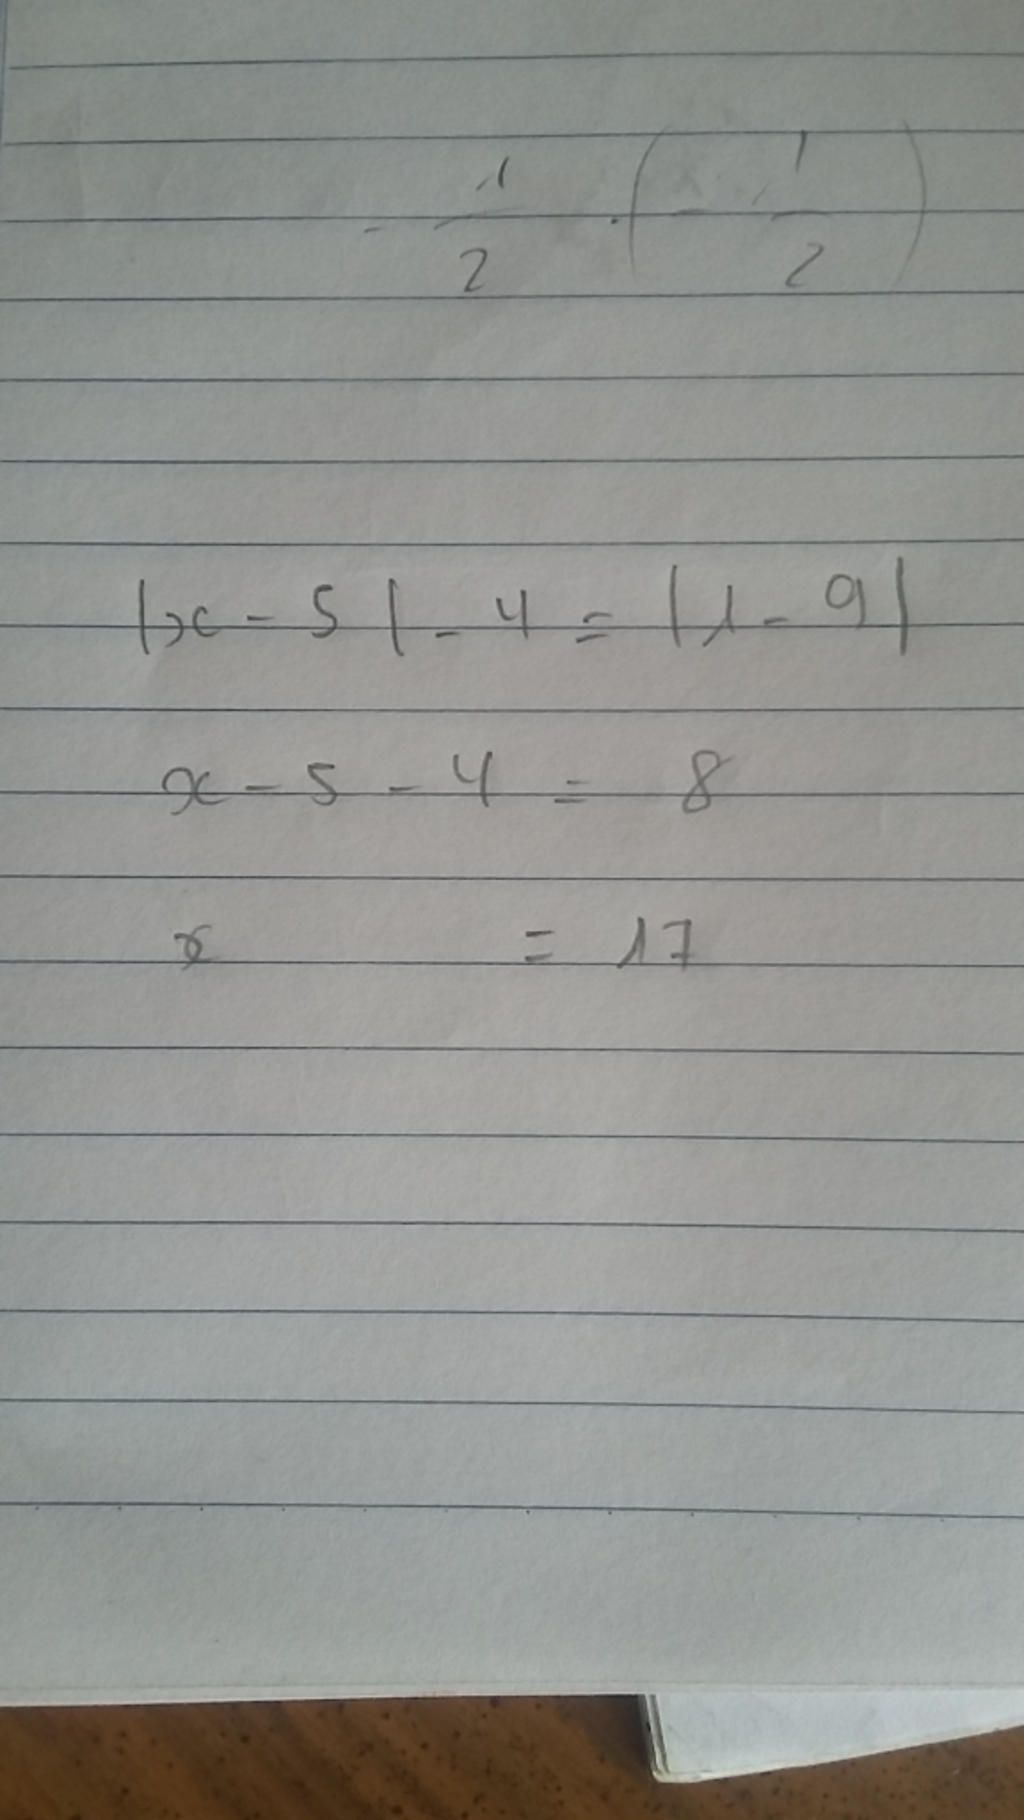 - 1/2 . (- 1/2)
|x - 5| - 4 = |1 - 9|
x - 5 - 4 = 8
x = 17